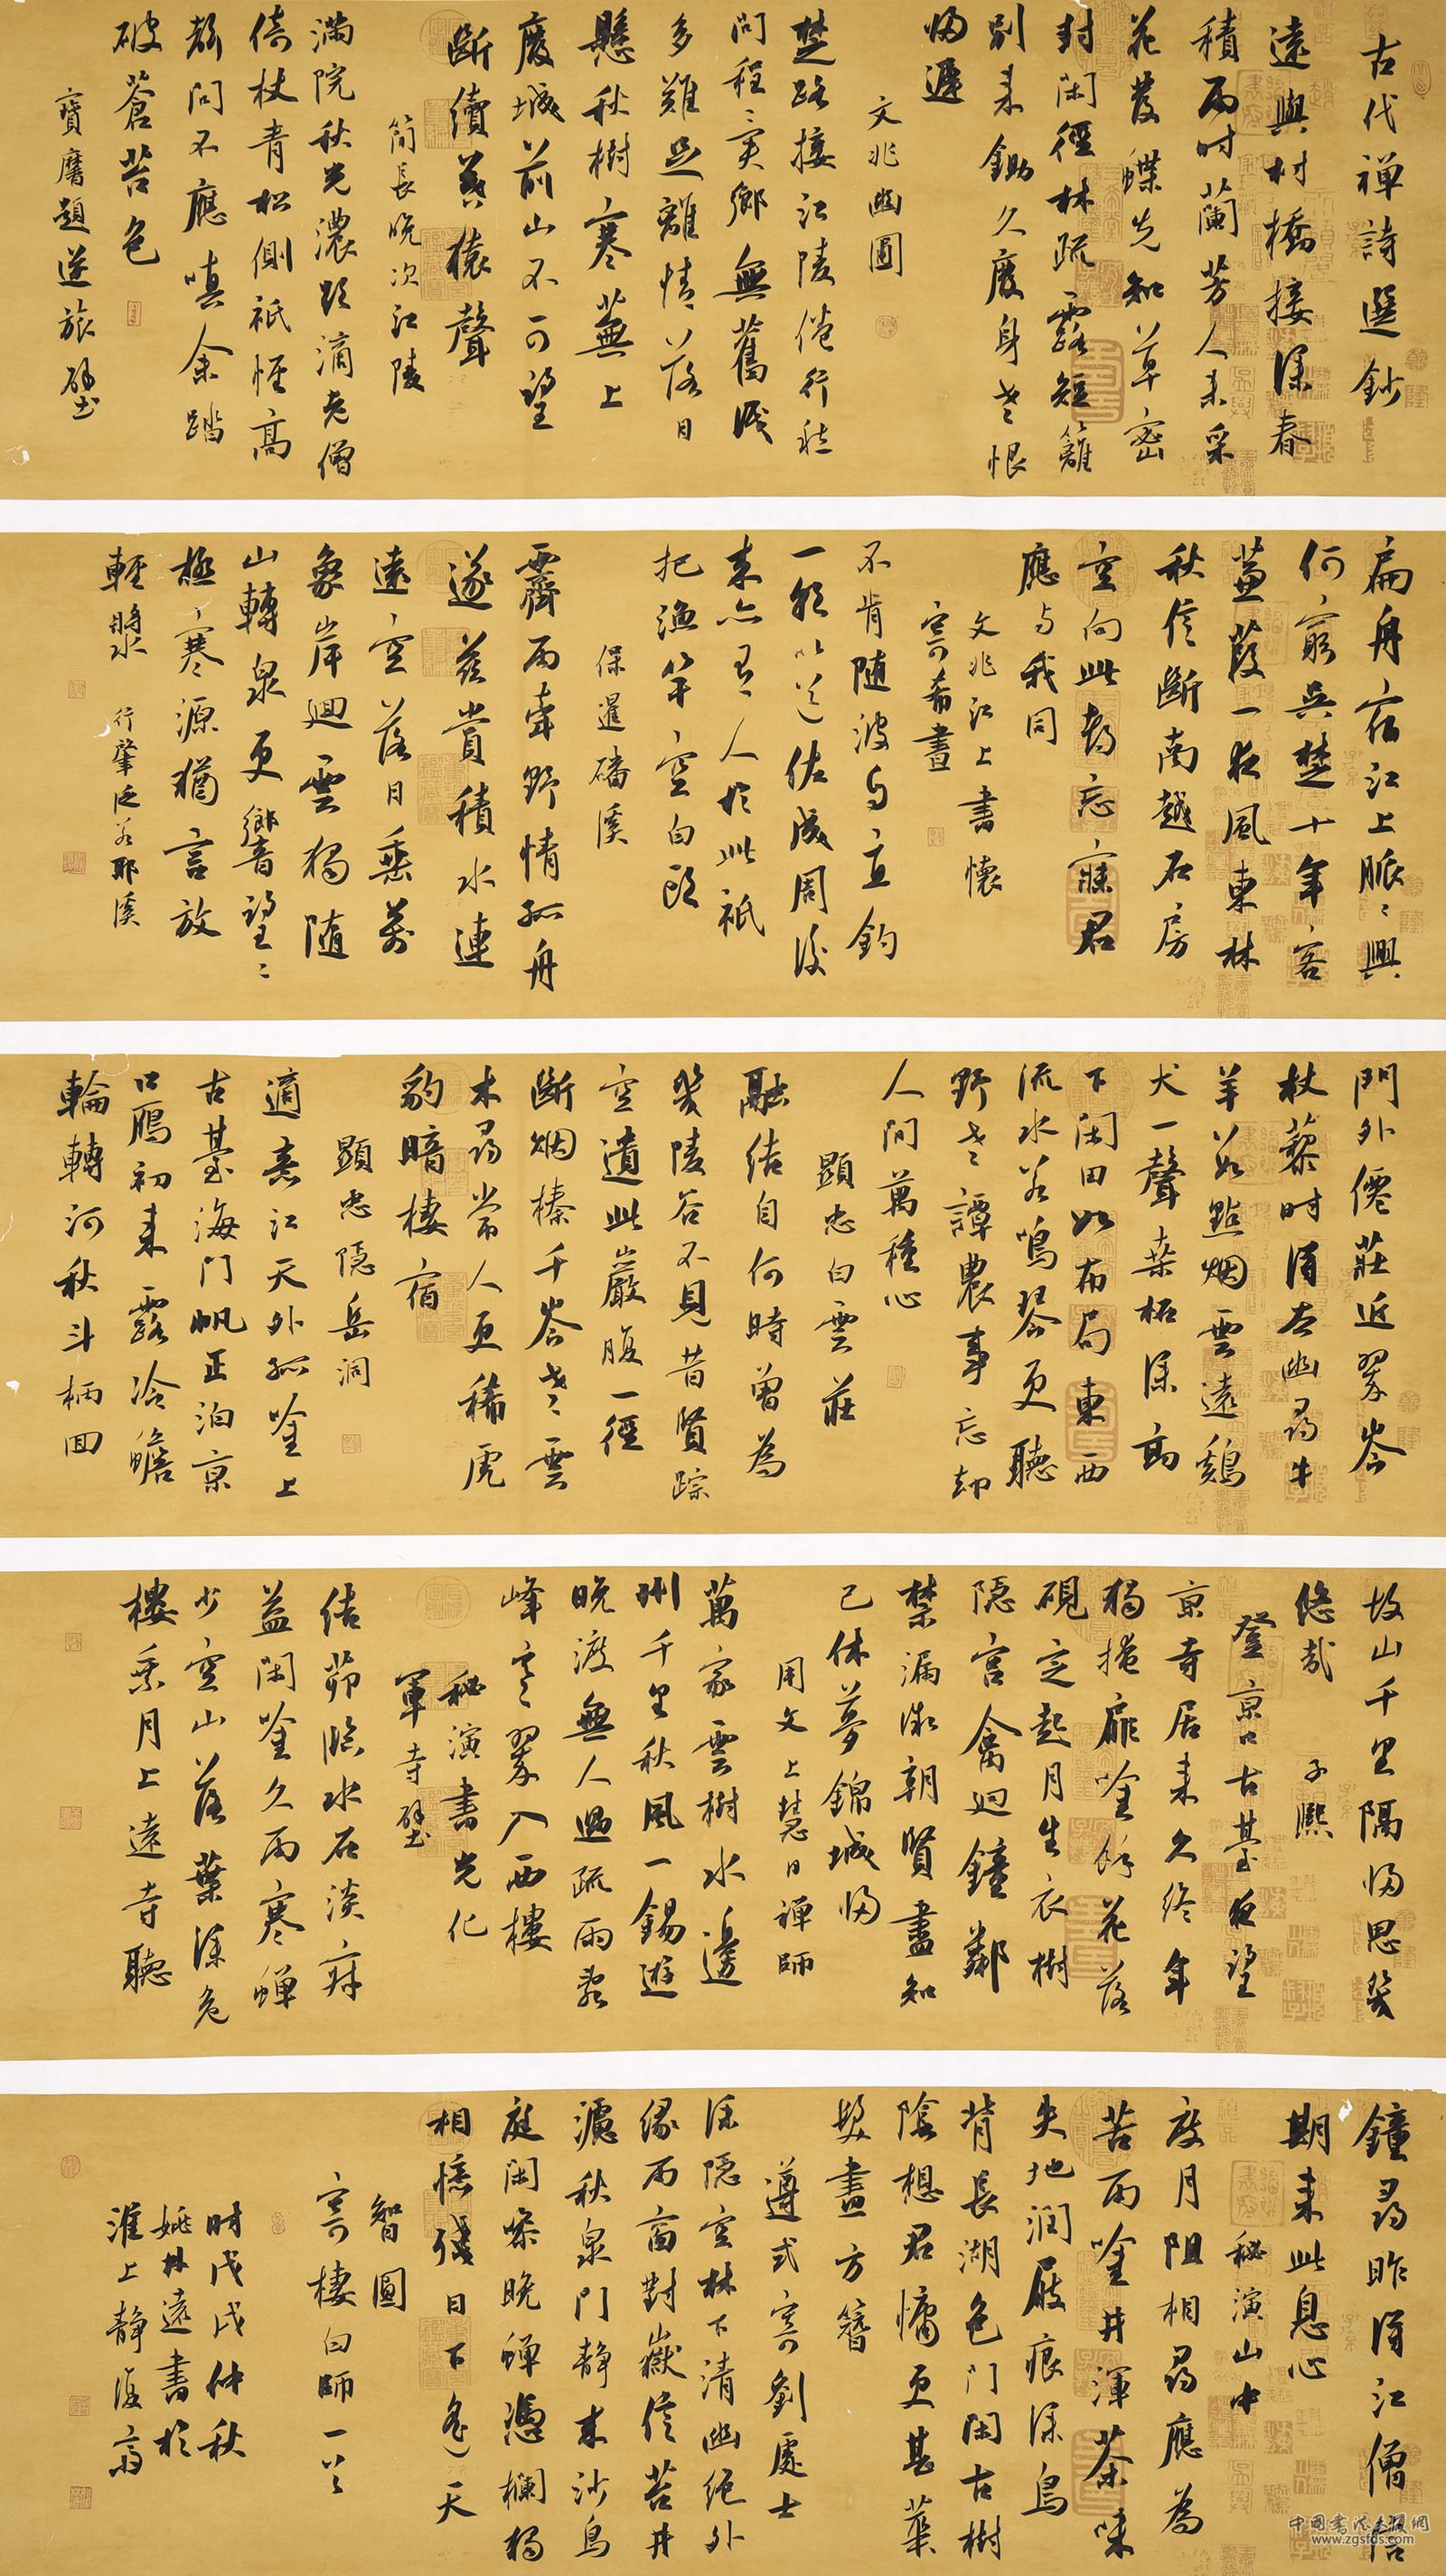 古代禅詩選鈔
遠與村橋接深春
積雨時蘭芳人未采
花發蝶先知草密
封閑徑林疏露短籬
別来鋤久廢身老恨
歸遲
文兆幽圃
楚路接江陵倦行愁
問程程異鄉無舊識
多難足離情落日
懸秋樹寒蕪上
廢城前山不可望
斷續暮猿聲
簡長晚次江陵
满院秋光濃欲滴老僧
倚杖青松側衹怪高
聲問不應嗔余踏
破蒼苔色
寶麐題逆旅壁
扁舟宿江上脈脈興
何窮吳楚十年客
蒹葭一夜風東林
秋信斷南越石房
空向此都忘寐君
應与我同
文兆江上書懷
寄希晝
不肯随波与直釣
一朝以道佐成周後
来亦有人於此衹
把漁竿空白頭
保暹磻溪
霽雨牽野情孤舟
遂兹賞積水連
遠空落日垂萬
象岸迴雲獨随
山轉泉更響望望
極寒源猶言放
輕槳
行肇泛若耶溪
門外僊莊近翠岑
杖藜時得去幽尋牛
羊數點烟雲遠鷄
犬一聲桑柘深高
下閑田如布局東西
流水若鳴琴更聽
野老譚農事忘却
人間萬種心
顯忠白雲莊
融结自何時曾為
幾陵谷不見昔賢踪
空遺此巖腹一徑
斷烟榛千岑老雲
木尋常人更稀虎
豹暗棲宿
顯忠隐岳洞
適意江天外孤吟上
古基海門帆正泊京
口鴈初来露冷蟾
輪轉河秋斗柄回
故山千里隔歸思幾
悠哉 子熙
登京口古基夜望
京寺居来久終年
獨掩扉吟餘花落
硯定起月生衣樹
隐宫禽迴鐘鄰
禁漏微朝賢盡知
己休夢錦城歸
用文上慧日禪師
萬家雲樹水邊
州千里秋風一錫遊
晚渡無人過疏雨乱
峰寒翠入西樓
秘演書光化
軍寺壁
结茆臨水石淡寂
益閑吟久雨寒蟬
少空山落葉深危
樓乘月上遠寺聽
鐘尋昨得江僧信
期来此息心
秘演山中
度月阻相尋應為
苦雨吟井渾茶味
失地潤屐痕深鳥
背長湖色門閑古樹
陰想君慵更甚華
髮盡方簪
遵式寄劉處士
深隐空林下清幽绝外
缘雨窗對嶽信苔井
濾秋泉門静来沙鳥
庭閑噪晚蟬憑欄獨
相憶殘日下遙天
智圓
寄棲白師一首
時戊戌仲秋
姚林遠書於
淮上静復齋
中国书法金报网
www.zgsfds.com